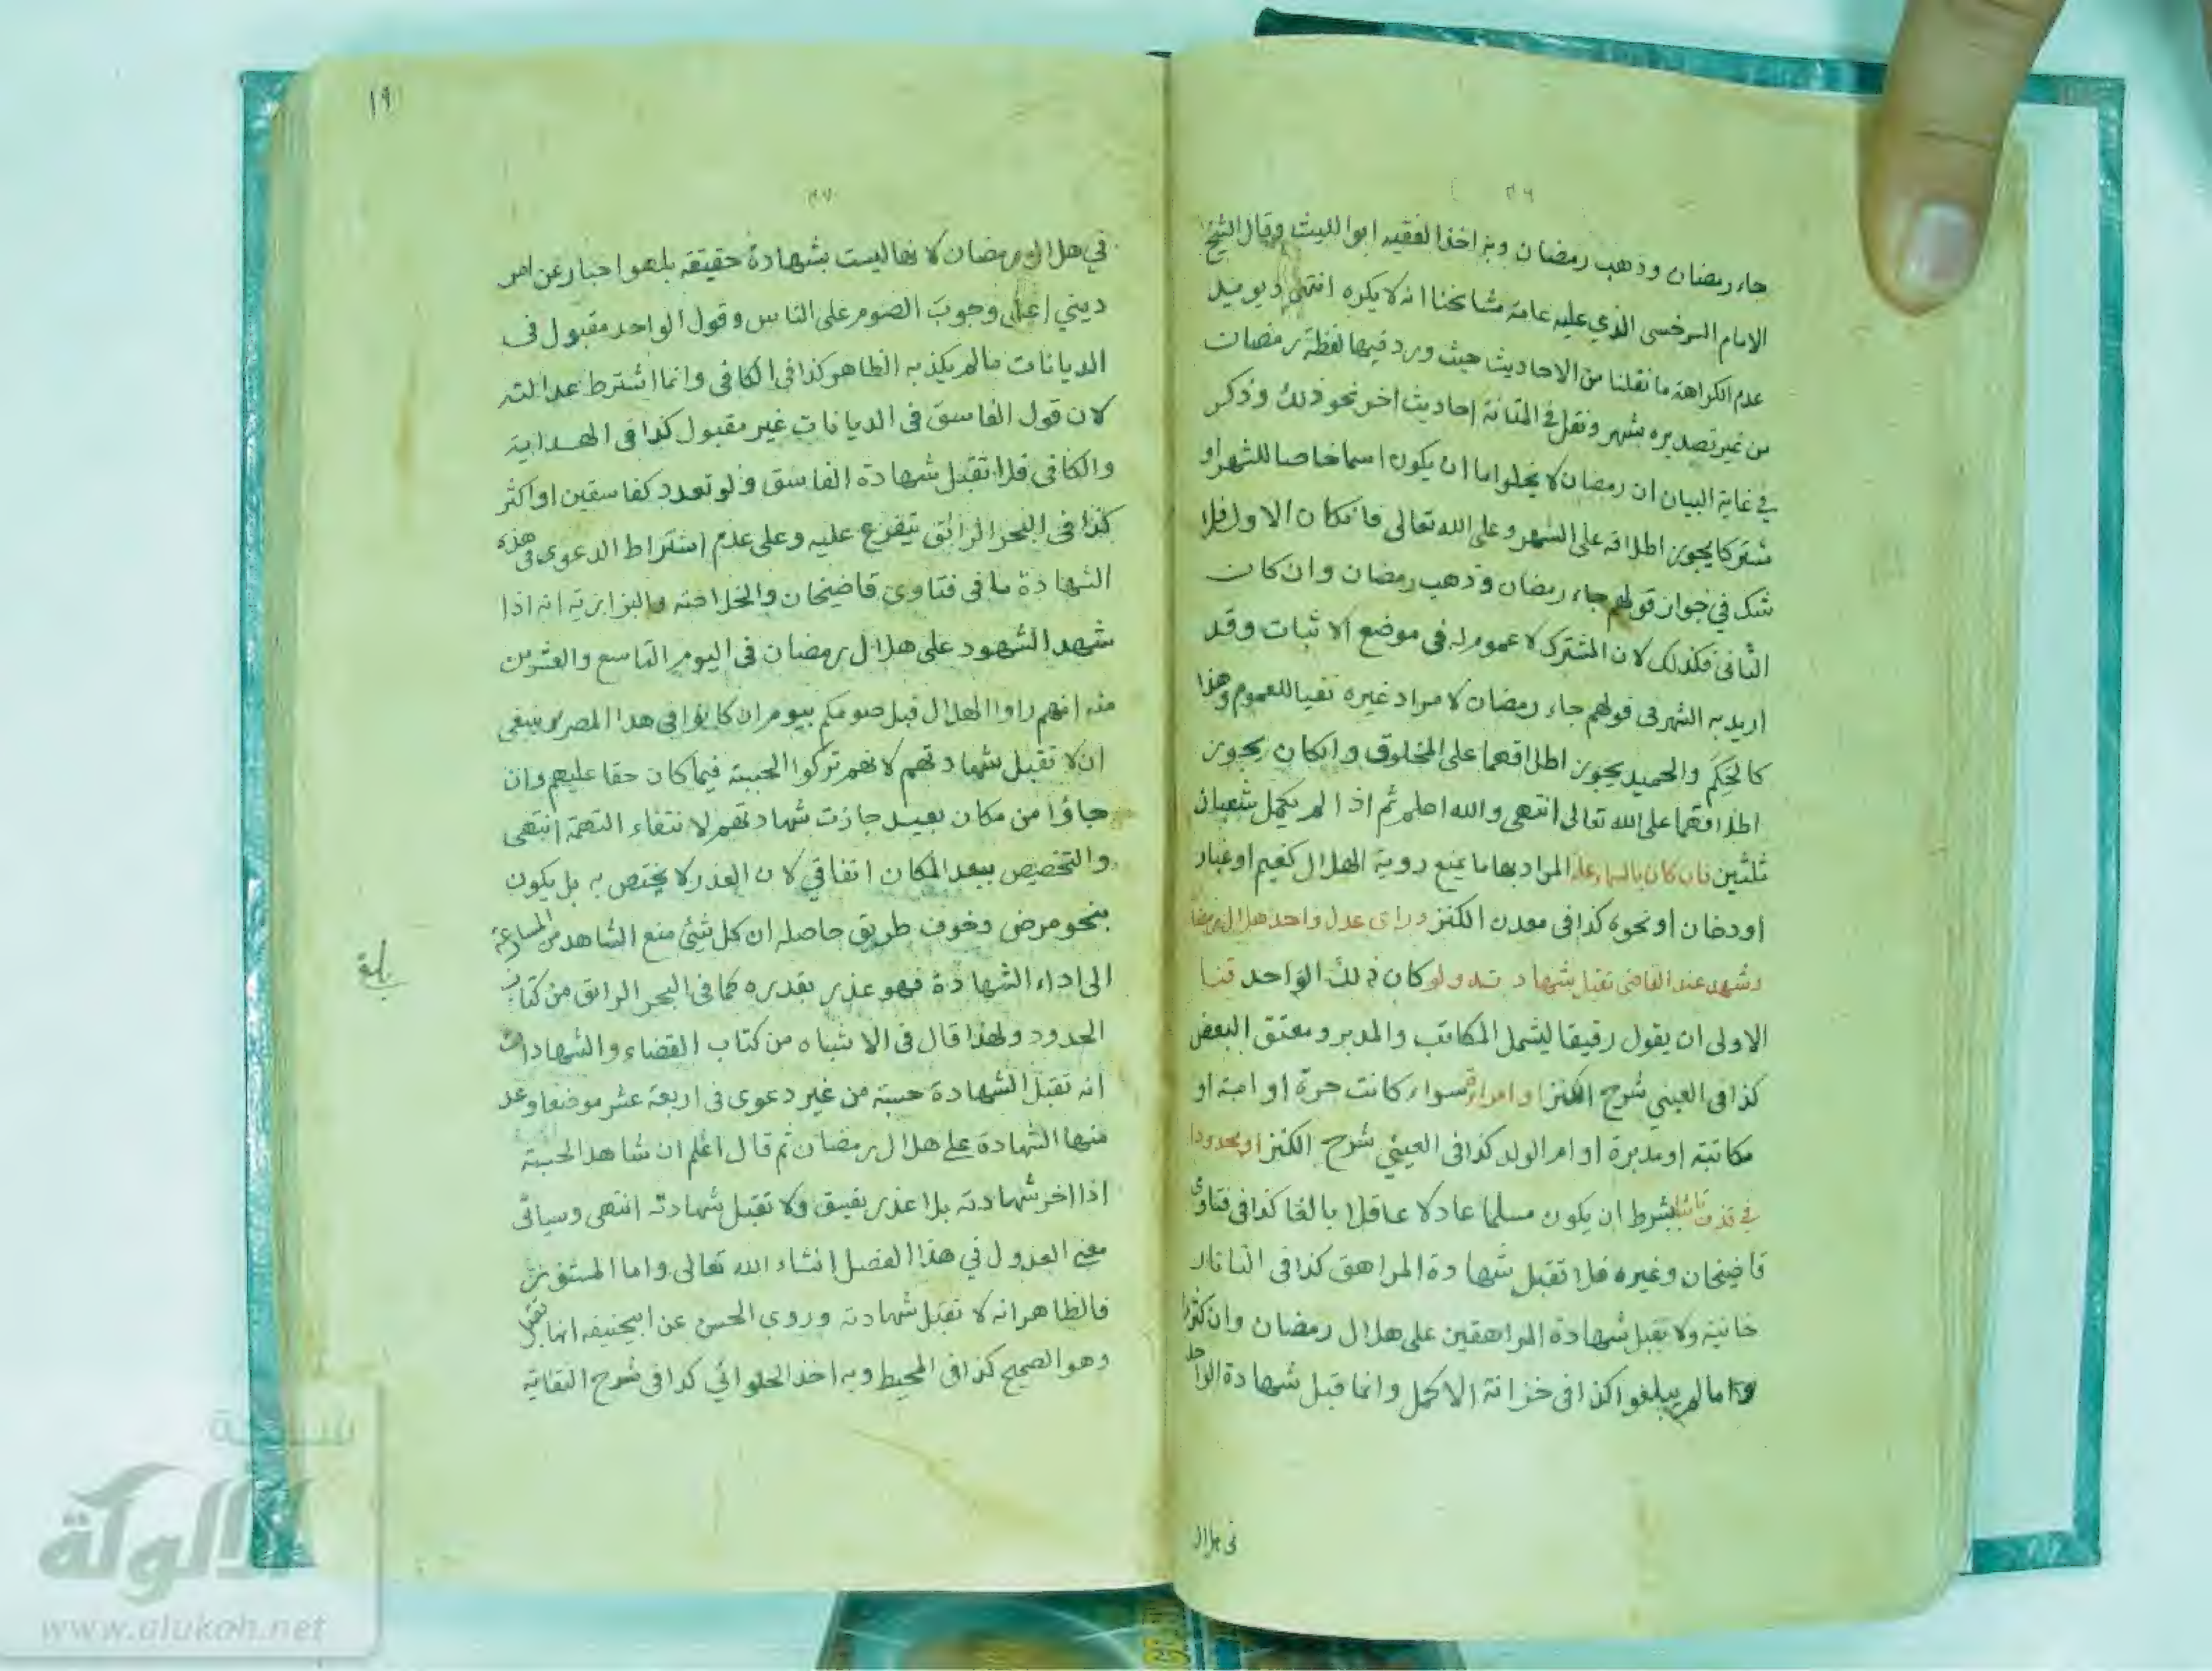 ٣٦
جاء رمضان وذهب رمضان وبه اخذ الفقيه ابو الليث وقال الشيخ
الامام السرخسى الذي عليه عامة مشايخنا انه لا يكره انتهى ويوميد
عدم الكراهة ما نقلنا من الاحاديث حيث ورد فيها لفظة رمضان
من غير تصديره بشهر ونقل في المتانة احاديث اخر نحو ذلك وذكر
في غاية البيان ان رمضان لا يخلوا اما ان يكون اسما خاصا للشهر او
مشتركا يجوز اطلاقه على الشهر وعلى الله تعالى فانكان الاول فلا
شك في جواز قولهم جاء رمضان وذهب رمضان وان كان
الثانى فكذلك لان المشترك لا عموم له فى موضع الاثبات وقد
اريد به الشهر فى قولهم جاء رمضان لا مراد غيره نفيا للعموم وهذا
كالحكم والحميد يجوز اطلاقهما على المخلوق وانكان يجوز
اطلاقهما على الله تعالى انتهى والله اعلم ثم اذا لم يكمل شعبان
ثلثين فان كان بالسماء علة المراد بها ما يمنع روية الهلال كغيم او غبار
او دخان او نحوه كذا فى معدن الكنز وراى عدل واحد هلال رمضان
وشهد عند القاضى تقبل شهادته ولو كان ذلك الواحد قنا
الاولى ان يقول رقيقا ليشمل المكاتب والمدبر ومعتق البعض
كذا فى العيني شرح الكنز او امراة سواء كانت حرة او امة او
مكاتبة او مدبرة او ام الولد كذا فى العيني شرح الكنز او محدودا
في قذف تائبا بشرط ان يكون مسلما عادلا عاقلا بالغا كذا فى فتاوى
قاضيخان وغيره فلا تقبل شهادة المراهق كذا فى التاتار
خانية ولا يقبل شهادة المراهقين على هلال رمضان وان كثروا
واما لم يبلغوا كذا فى خزانة الاكمل وانما قبل شهادة الواحد
فى هلال
١٩
٣٧
في هلال رمضان لانها ليست بشهادة حقيقة بل هو اخبار عن امر
ديني اعلى وجوب الصوم على الناس وقول الواحد مقبول فى
الديانات مالم يكذبه الظاهر كذا فى الكافى وانما اشترط عدالته
لان قول الفاسق فى الديانات غير مقبول كذا فى الهداية
والكافى فلا تقبل شهادة الفاسق ولو تعدد كفاسقين او اكثر
كذا فى البحر الرائق يتفرع عليه وعلى عدم اشتراط الدعوى فى هذه
الشهادة ما فى فتاوى قاضيخان والخلاصة والبزازية انه اذا
شهد الشهود على هلال رمضان فى اليوم التاسع والعشرين
منه انهم راوا الهلال قبل صومكم بيوم ان كانوا فى هذا المصر ينبغى
ان لا تقبل شهادتهم لانهم تركوا الحسبة فيما كان حقا عليهم وان
جاؤا من مكان بعيد جازت شهادتهم لانتفاء التهمة انتهى
والتخصيص ببعد المكان اتفاقي لان العذر لا يختص به بل يكون
بنحو مرض وخوف طريق حاصله ان كل شئ منع الشاهد من المسارعة
الى اداء الشهادة فهو عذر بقدره كما فى البحر الرائق من كتاب
الحدود ولهذا قال فى الاشباه من كتاب القضاء والشهادات
انه تقبل الشهادة حسبة من غير دعوى فى اربعة عشر موضعا وعد
منها الشهادة على هلال رمضان ثم قال اعلم ان شاهد الحسبة
اذا اخر شهادته بلا عذر يفسق ولا تقبل شهادته انتهى وسياتى
معنى العدول في هذا الفصل انشاء الله تعالى واما المستور
فالظاهر انه لا تقبل شهادته وروى الحسن عن ابيحنيفه انها تقبل
وهو الصحيح كذا فى المحيط وبه اخذ الحلوائي كذا فى شرح النقاية
شبكة
الالوكة
www.alukah.net